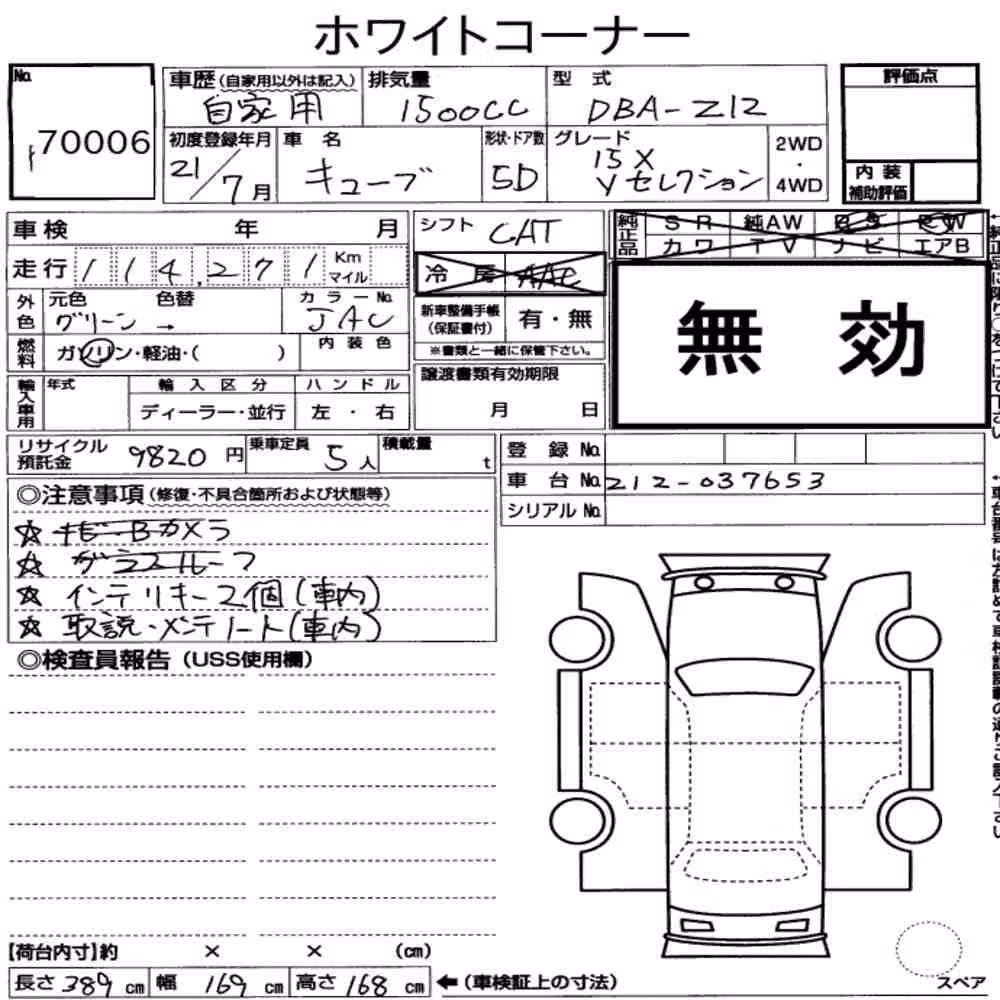 ホワイトコーナー
No.
70006
車歴(自家用以外は記入)
自家用
排気量
1500CC
型式
DBA-Z12
初度登録年月
21/7月
車名
キューブ
形状・ドア数
5D
グレード
15X
Vセレクション
2WD
・
4WD
評価点
内装
補助評価
車検 年 月
走行 114,271 Km マイル
外色
元色 色替
グリーン →
カラーNo.
JAC
燃料
ガソリン・軽油・( )
内装色
輸入車用
年式
輸入区分
ディーラー・並行
ハンドル
左・右
シフト CAT
冷房 AAC
新車整備手帳
(保証書付)
有・無
※書類と一緒に保管下さい。
譲渡書類有効期限
月 日
純正品
SR 純AW PW
カワ TV ナビ エアB
無効
リサイクル
預託金
9820円
乗車定員
5人
積載量
t
登録No.
車台No. Z12-037653
シリアルNo.
◎注意事項(修復・不具合箇所および状態等)
☆ ナビ・Bカメラ
☆ ガラスルーフ
☆ インテリキー2個(車内)
☆ 取説・メンテノート(車内)
◎検査員報告(USS使用欄)
【荷台内寸】約 × × (cm)
長さ 389 cm 幅 169 cm 高さ 168 cm
←(車検証上の寸法)
スペア